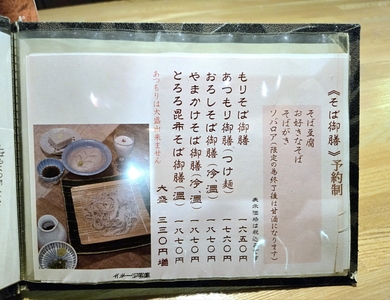 《そば御膳》予約制
そば豆腐
お好きなそば
そばがき
ソバロア(限定の為終了後は甘酒になります)
表示価格は税込です
もりそば御膳 一六五〇円
あつもり御膳(つけ麺) 一七六〇円
おろしそば御膳(冷、温) 一八七〇円
やまかけそば御膳(冷、温) 一八七〇円
とろろ昆布そば御膳(温) 一八七〇円
大盛 三三〇円増
あつもりは大盛出来ません
イメージ写真